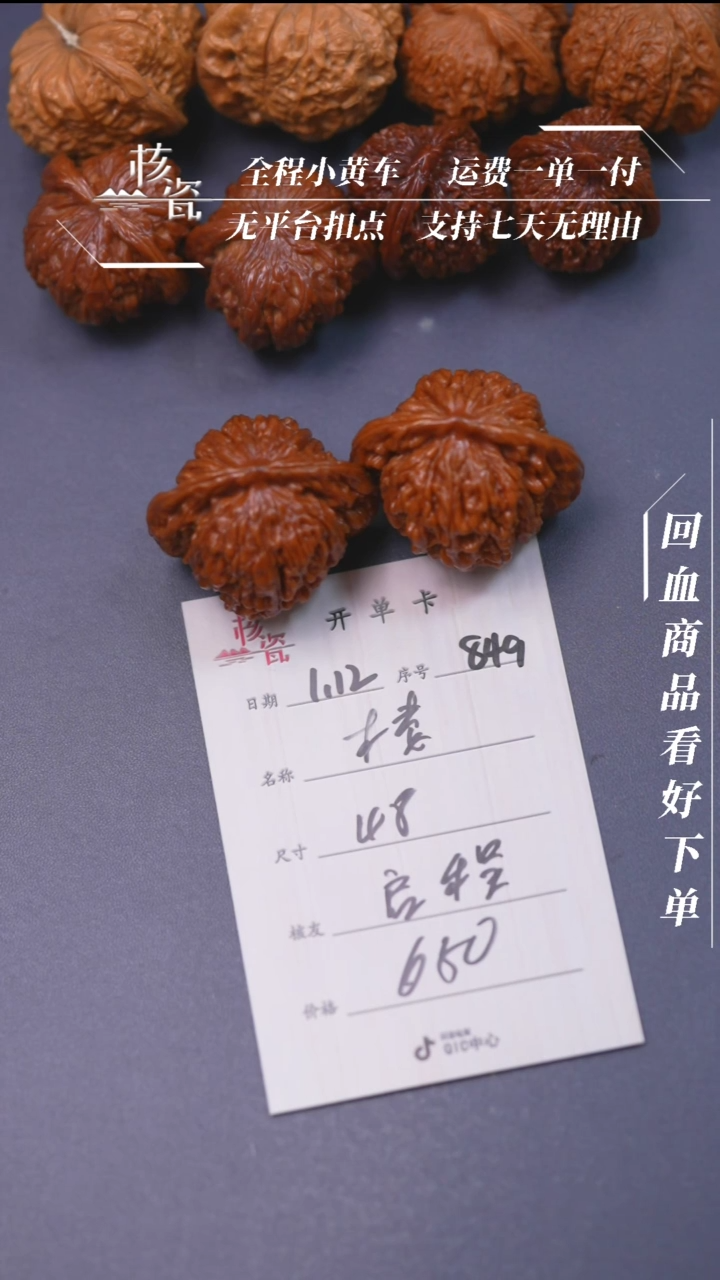 核瓷
全程小黄车 运费一单一付
无平台扣点 支持七天无理由
回血商品看好下单
核瓷
开单卡
日期 1.12 序号 849
名称
尺寸 48
核友 启程
价格 650
QIC中心